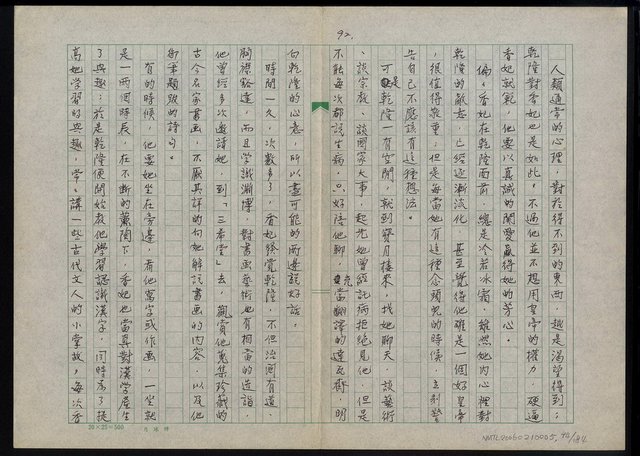 92.
人類通常的心理，對於得不到的東西，越是渴望得到；
乾隆對香妃也是如此。不過他並不想用皇帝的權力，硬逼
香妃就範，他要以真誠的關愛贏得她的芳心。
偏，香妃在乾隆面前總是冷若冰霜，雖然她內心裡對
乾隆的敵意，已經逐漸淡化，甚至覺得他確是一個好皇帝
，很值得敬重；但是每當她有這種念頭兒的時候，立刻警
告自己不應該有這種想法。
可是乾隆一有空閒，就到寶月樓來，找她聊天，談藝術
、談宗教、談國家大事，起先她曾經託病拒絕見他，但是
不能每次都說生病，只好陪他聊，充當翻譯的達瓦齊，明
白乾隆的心意，所以儘可能的兩邊說好話。
時間一久，次數多了，香妃終覺乾隆，不但治國有道、
胸襟豁達，而且學識淵博，對書畫藝術也有相當的造詣
他曾經多次邀請她，到「三希堂」去，觀賞他蒐集珍藏的
古今名家書畫，不厭其詳的向她解說書畫的內容，以及他
御筆題跋的詩句。
有的時候，他要她坐在旁邊，看他寫字或作畫，一坐就
是一兩個時辰，在不斷的薰陶下，香妃也當真對漢學產生
了興趣；於是乾隆便開始教他學習認識漢字，同時為了提
高她學習的興趣，常常講一些古代文人的小掌故，每次香
20×25=500
NMTL20050210005_92/184